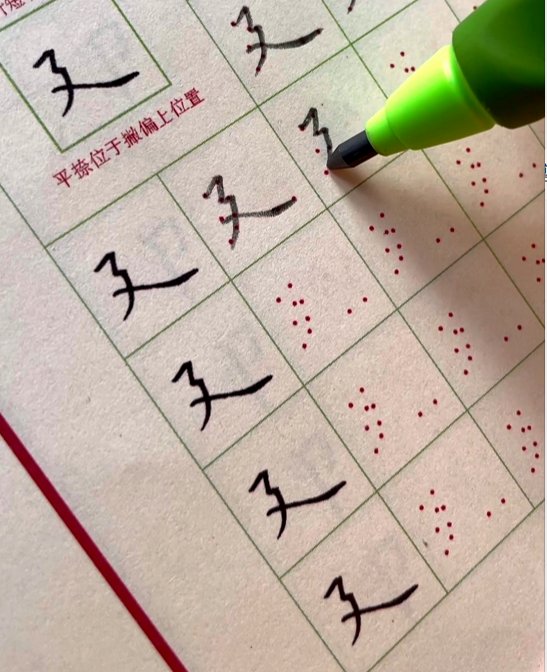 廴 廴
平捺位于撇偏上位置
廴 廴
廴
廴
廴